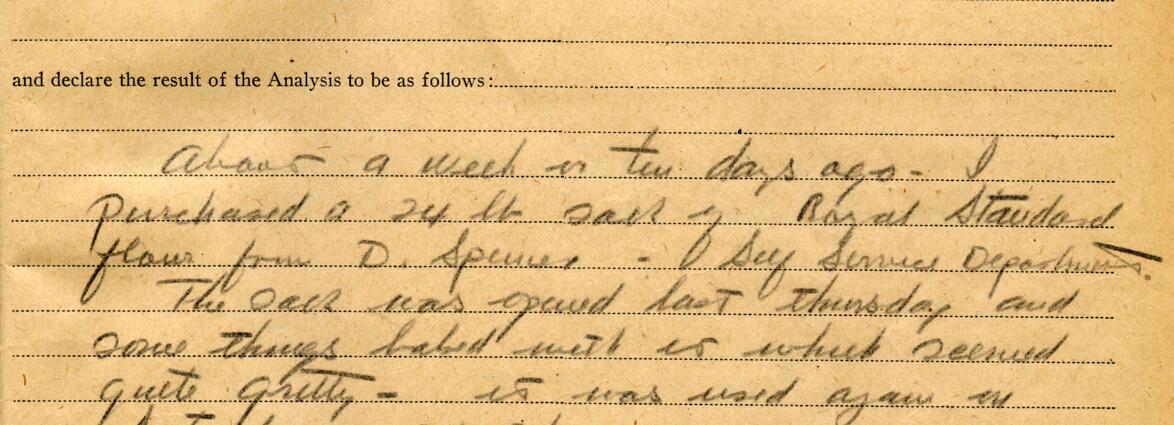 and declare the result of the Analysis to be as follows:
About a week or ten days ago - I
purchased a 24 lb sack of Royal Standard
flour from D. Spencer - Self Service Department.
The sack was opened last thursday and
some things baked with it which seemed
quite gritty - it was used again on